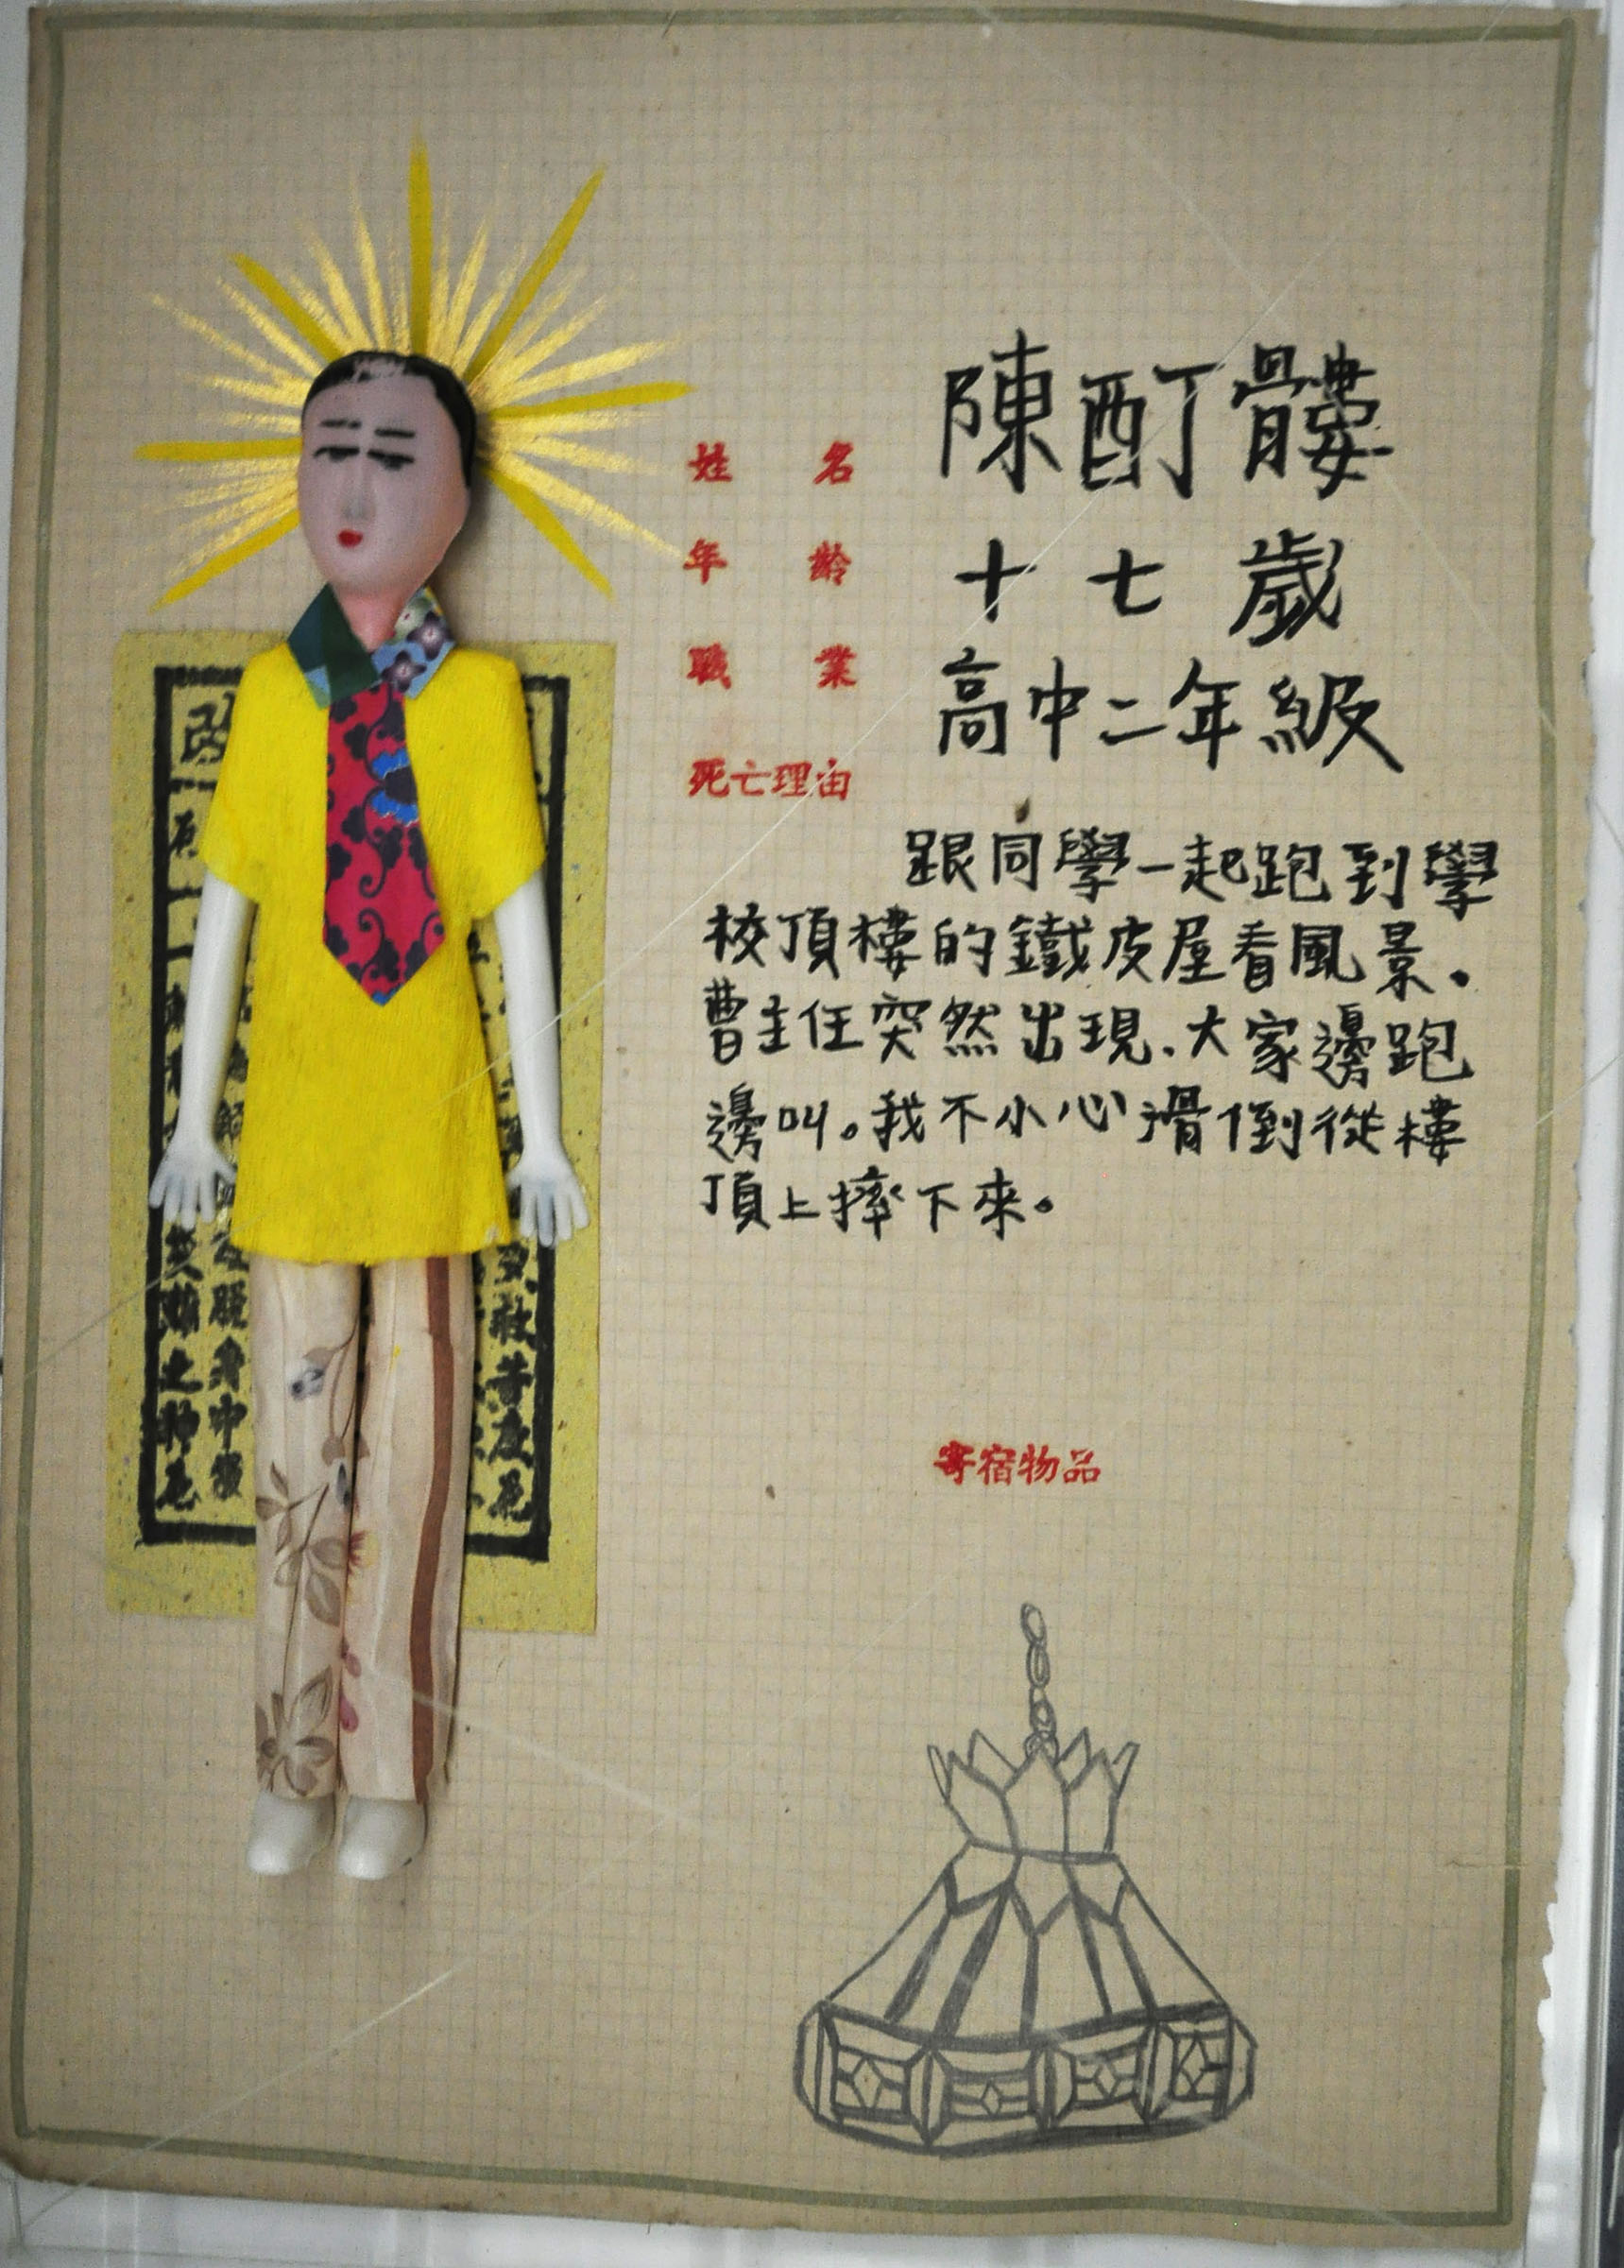 姓名 陳酊髏
年齡 十七歲
職業 高中二年級
死亡理由
跟同學一起跑到學
校頂樓的鐵皮屋看風景。
曹主任突然出現、大家邊跑
邊叫。我不小心滑倒從樓
頂上摔下來。
寄宿物品